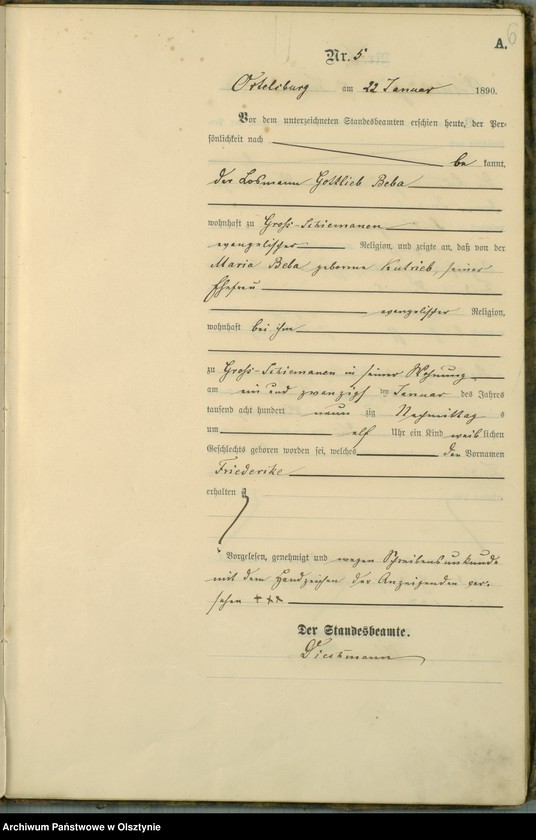 6
A.
Nr. 5
Ortelsburg am 22 Januar 1890.
Vor dem unterzeichneten Standesbeamten erschien heute, der Per-
sönlichkeit nach
be kannt,
der Losmann Gottlieb Beba
wohnhaft zu Groß-Schiemanen
evangelischer Religion, und zeigte an, daß von der
Maria Beba geborene Kutrieb, seiner
Ehefrau
evangelischer Religion,
wohnhaft bei ihm
zu Groß-Schiemanen in seiner Wohnung
am ein und zwanzigsten Januar des Jahres
tausend acht hundert neun zig Nachmittag s
um elf Uhr ein Kind weib lichen
Geschlechts geboren worden sei, welches den Vornamen
Friederike
erhalten
Vorgelesen, genehmigt und wegen Schreibensunkunde
mit dem Handzeichen des Anzeigenden ver-
sehen +++
Der Standesbeamte.
Archiwum Państwowe w Olsztynie